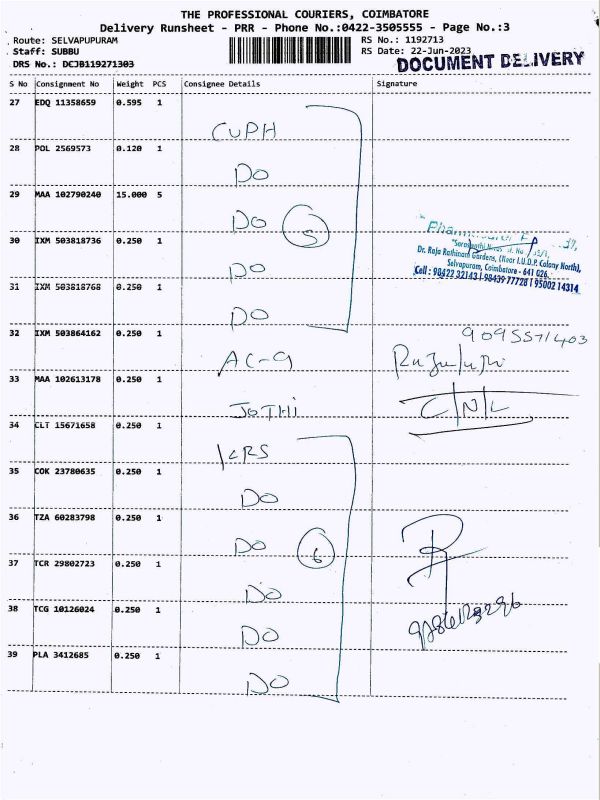 THE PROFESSIONAL COURIERS, COIMBATORE
Delivery Runsheet - PRR - Phone No.:0422-3505555 - Page No.:3
Route: SELVAPUPURAM RS No.: 1192713
Staff: SUBBU RS Date: 22-Jun-2023
DRS No.: DCJB119271303 DOCUMENT DELIVERY
S No Consignment No Weight PCS Consignee Details Signature
27 EDQ 11358659 0.595 1 CUPH
28 POL 2569573 0.120 1 DO
29 MAA 102790240 15.000 5 DO 5
30 IXM 503818736 0.250 1 DO
Dr. Raja Rathinam Gardens, (Near I.U.D.P. Colony North),
Selvapuram, Coimbatore - 641 026.
Cell : 98422 32143 | 98439 77728 | 95002 14314
31 IXM 503818768 0.250 1 DO
32 IXM 503864162 0.250 1 AC-9 9095571403
33 MAA 102613178 0.250 1 JOTHI C/N/L
34 CLT 15671658 0.250 1 KRS
35 COK 23780635 0.250 1 DO
36 TZA 60283798 0.250 1 DO 6
37 TCR 29802723 0.250 1 DO
38 TCG 10126024 0.250 1 DO
39 PLA 3412685 0.250 1 DO